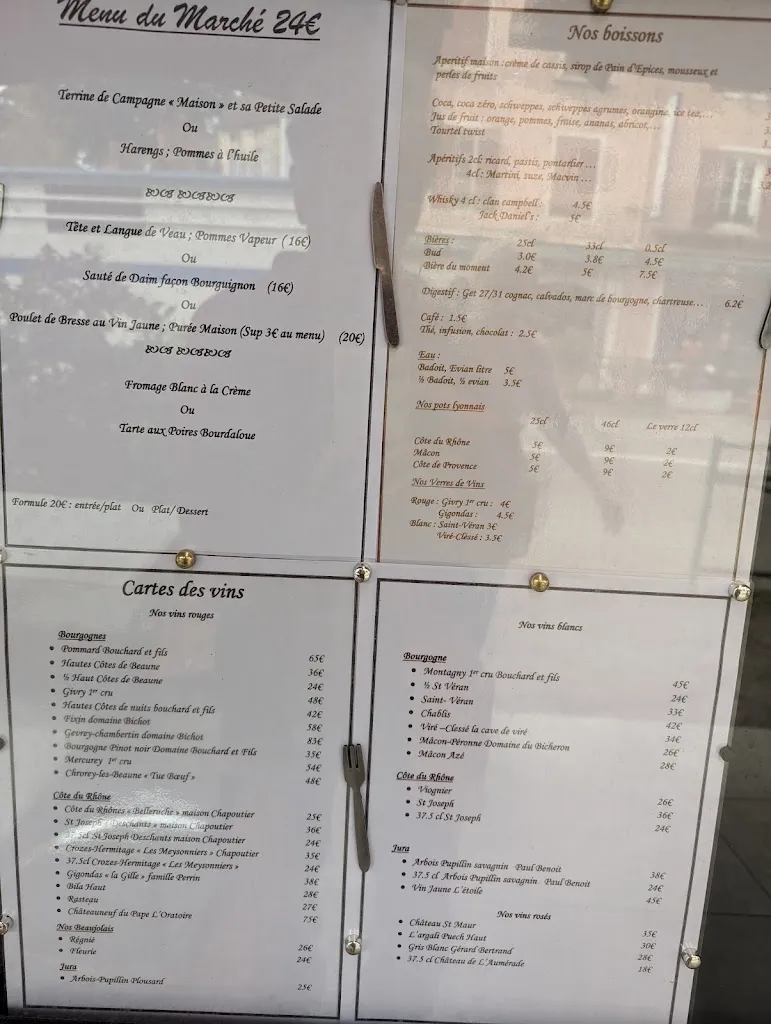 Menu du Marché 24€
Terrine de Campagne « Maison » et sa Petite Salade
Ou
Harengs ; Pommes à l'huile
Tête et Langue de Veau ; Pommes Vapeur ( 16€)
Ou
Sauté de Daim façon Bourguignon (16€)
Ou
Poulet de Bresse au Vin Jaune ; Purée Maison (Sup 3€ au menu) (20€)
Fromage Blanc à la Crème
Ou
Tarte aux Poires Bourdaloue
Formule 20€ : entrée/plat Ou Plat/ Dessert
Nos boissons
Aperitif maison : crème de cassis, sirop de Pain d'Epices, mousseux et
perles de fruits
Coca, coca zéro, schweppes, schweppes agrumes, orangina, ice tea,…
Jus de fruit : orange, pommes, fraise, ananas, abricot,…
Tourtel twist
Apéritifs 2cl: ricard, pastis, pontarlier …
4cl : Martini, suze, Macvin …
Whisky 4 cl : clan campbell : 4.5€
Jack Daniel's : 5€
Bières : 25cl 33cl 0.5cl
Bud 3.0€ 3.8€ 4.5€
Bière du moment 4.2€ 5€ 7.5€
Digestif : Get 27/31 cognac, calvados, marc de bourgogne, chartreuse… 6.2€
Café : 1.5€
Thé, infusion, chocolat : 2.5€
Eau :
Badoit, Evian litre 5€
½ Badoit, ½ evian 3.5€
Nos pots lyonnais
25cl 46cl Le verre 12cl
Côte du Rhône 5€ 9€ 2€
Mâcon 5€ 9€ 2€
Côte de Provence 5€ 9€ 2€
Nos Verres de Vins
Rouge : Givry 1er cru : 4€
Gigondas : 4.5€
Blanc : Saint-Véran 3€
Viré-Clessé : 3.5€
Cartes des vins
Nos vins rouges
Bourgognes
• Pommard Bouchard et fils 65€
• Hautes Côtes de Beaune 36€
• ½ Haut Côtes de Beaune 24€
• Givry 1er cru 48€
• Hautes Côtes de nuits bouchard et fils 42€
• Fixin domaine Bichot 58€
• Gevrey-chambertin domaine Bichot 83€
• Bourgogne Pinot noir Domaine Bouchard et Fils 35€
• Mercurey 1er cru 54€
• Chrorey-les-Beaune « Tue Bœuf » 48€
Côte du Rhône
• Côte du Rhônes « Belleruche » maison Chapoutier 25€
• St Joseph « Deschants » maison Chapoutier 36€
• 37.5cl St Joseph Deschants maison Chapoutier 24€
• Crozes-Hermitage « Les Meysonniers » Chapoutier 35€
• 37.5cl Crozes-Hermitage « Les Meysonniers » 24€
• Gigondas « la Gille » famille Perrin 38€
• Bila Haut 28€
• Rasteau 27€
• Châteauneuf du Pape L'Oratoire 75€
Nos Beaujolais
• Régnié 26€
• Fleurie 24€
Jura
• Arbois-Pupillin Ploussard 25€
Nos vins blancs
Bourgogne
• Montagny 1er cru Bouchard et fils 45€
• ½ St Véran 24€
• Saint- Véran 33€
• Chablis 42€
• Viré –Clessé la cave de viré 34€
• Mâcon-Péronne Domaine du Bicheron 26€
• Mâcon Azé 28€
Côte du Rhône
• Viognier 26€
• St Joseph 36€
• 37.5 cl St Joseph 24€
Jura
• Arbois Pupillin savagnin Paul Benoit 38€
• 37.5 cl Arbois Pupillin savagnin Paul Benoit 24€
• Vin Jaune L'étoile 45€
Nos vins rosés
• Château St Maur 35€
• L'argali Puech Haut 30€
• Gris Blanc Gérard Bertrand 28€
• 37.5 cl Château de L'Aumérade 18€